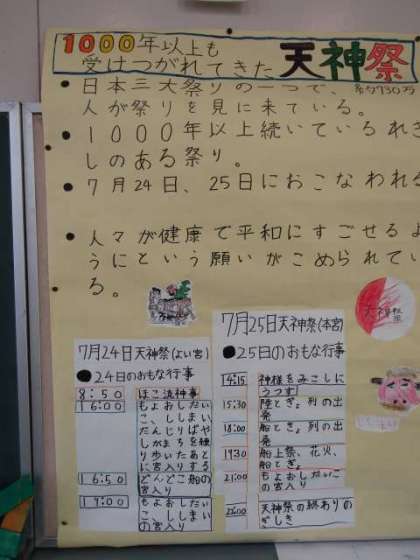 1000年以上も
受けつがれてきた 天神祭
● 日本三大祭りの一つで、約130万
人が祭りを見に来ている。
● 1000年以上続いているれき
しのある祭り。
● 7月24日、25日におこなわれる
● 人々が健康で平和にすごせるよ
うにという願いがこめられてい
る。
天神祭
7月24日天神祭(よい宮)
●24日のおもな行事
8:50 ほこ流神事
16:00 もよおしだい
こ、ししまい
だんじりばや
しがまちを練
り歩いたあと
に宮入りする
16:50 どんどこ船の
宮入り
19:00 もよおしだい
こ、ししまい
の宮入り
7月25日天神祭(本宮)
●25日のおもな行事
14:15 神様をみこしに
うつす
15:30 陸とぎょ列の出
発
18:00 船とぎょ列の出
発
19:30 船上祭、花火、
船とぎょ
21:00 もよおしだいこ
の宮入り
22:00 天神祭の終わりの
ぎしき